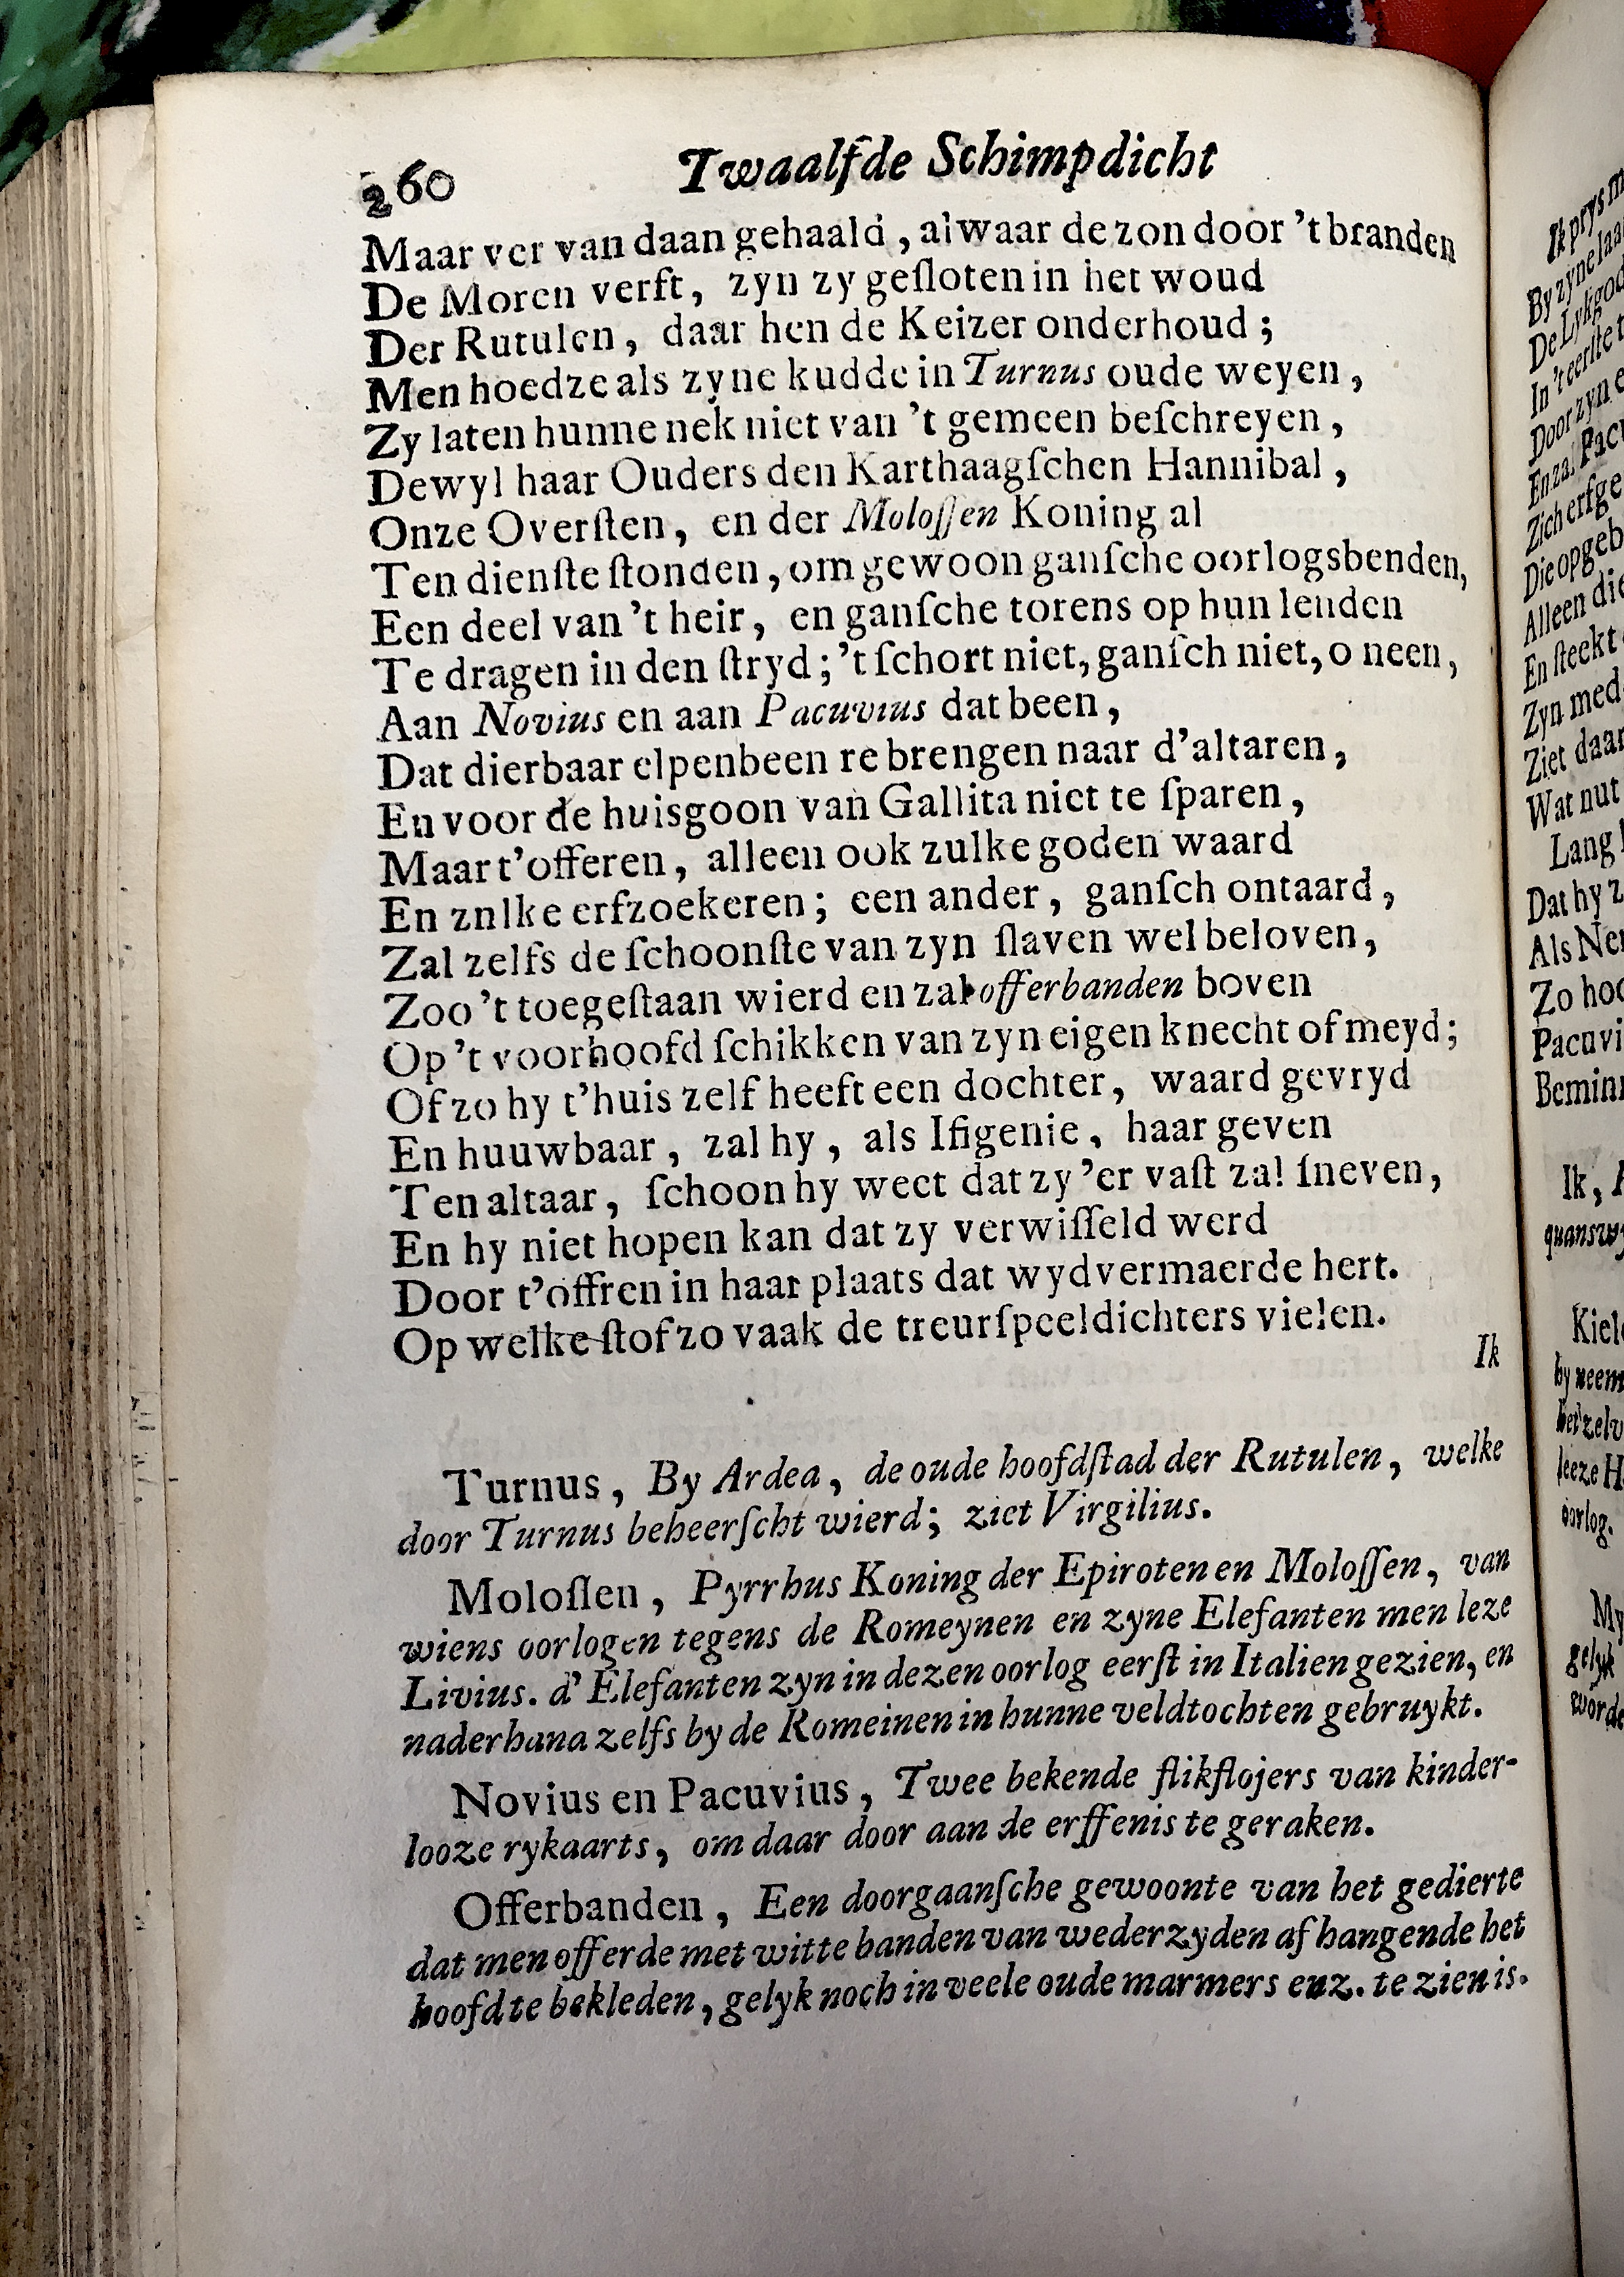 260 Twaalfde Schimpdicht
Maar ver van daan gehaald, alwaar de zon door 't branden
De Moren verft, zyn zy geſloten in het woud
Der Rutulen, daar hen de Keizer onderhoud;
Men hoedze als zyne kudde in Turnus oude weyen,
Zy laten hunne nek niet van 't gemeen beſchreyen,
Dewyl haar Ouders den Karthaagſchen Hannibal,
Onze Overſten, en der Moloſſen Koning al
Ten dienſte ſtonden, om gewoon ganſche oorlogsbenden,
Een deel van 't heir, en ganſche torens op hun lenden
Te dragen in den ſtryd; 't ſchort niet, ganſch niet, o neen,
Aan Novius en aan Pacuvius dat been,
Dat dierbaar elpenbeen re brengen naar d'altaren,
En voor de huisgoon van Gallita niet te ſparen,
Maar t'offeren, alleen ook zulke goden waard
En znlke erfzoekeren; een ander, ganſch ontaard,
Zal zelfs de ſchoonſte van zyn ſlaven wel beloven,
Zoo 't toegeſtaan wierd en zal offerbanden boven
Op 't voorhoofd ſchikken van zyn eigen knecht of meyd;
Of zo hy t'huis zelf heeft een dochter, waard gevryd
En huuwbaar, zal hy, als Ifigenie, haar geven
Ten altaar, ſchoon hy weet dat zy 'er vaſt zal ſneven,
En hy niet hopen kan dat zy verwiſſeld werd
Door t'offren in haar plaats dat wydvermaerde hert.
Op welke ſtof zo vaak de treurſpeeldichters vielen.
Ik
Turnus, By Ardea, de oude hoofdſtad der Rutulen, welke
door Turnus beheerſcht wierd; ziet Virgilius.
Moloſſen, Pyrrhus Koning der Epiroten en Moloſſen, van
wiens oorlogen tegens de Romeynen en zyne Elefanten men leze
Livius. d' Elefanten zyn in dezen oorlog eerſt in Italien gezien, en
naderhand zelfs by de Romeinen in hunne veldtochten gebruykt.
Novius en Pacuvius, Twee bekende flikflojers van kinder-
looze rykaarts, om daar door aan de erffenis te geraken.
Offerbanden, Een doorgaanſche gewoonte van het gedierte
dat men offerde met witte banden van wederzyden af hangende het
hoofd te bekleden, gelyk noch in veele oude marmers enz. te zien is.